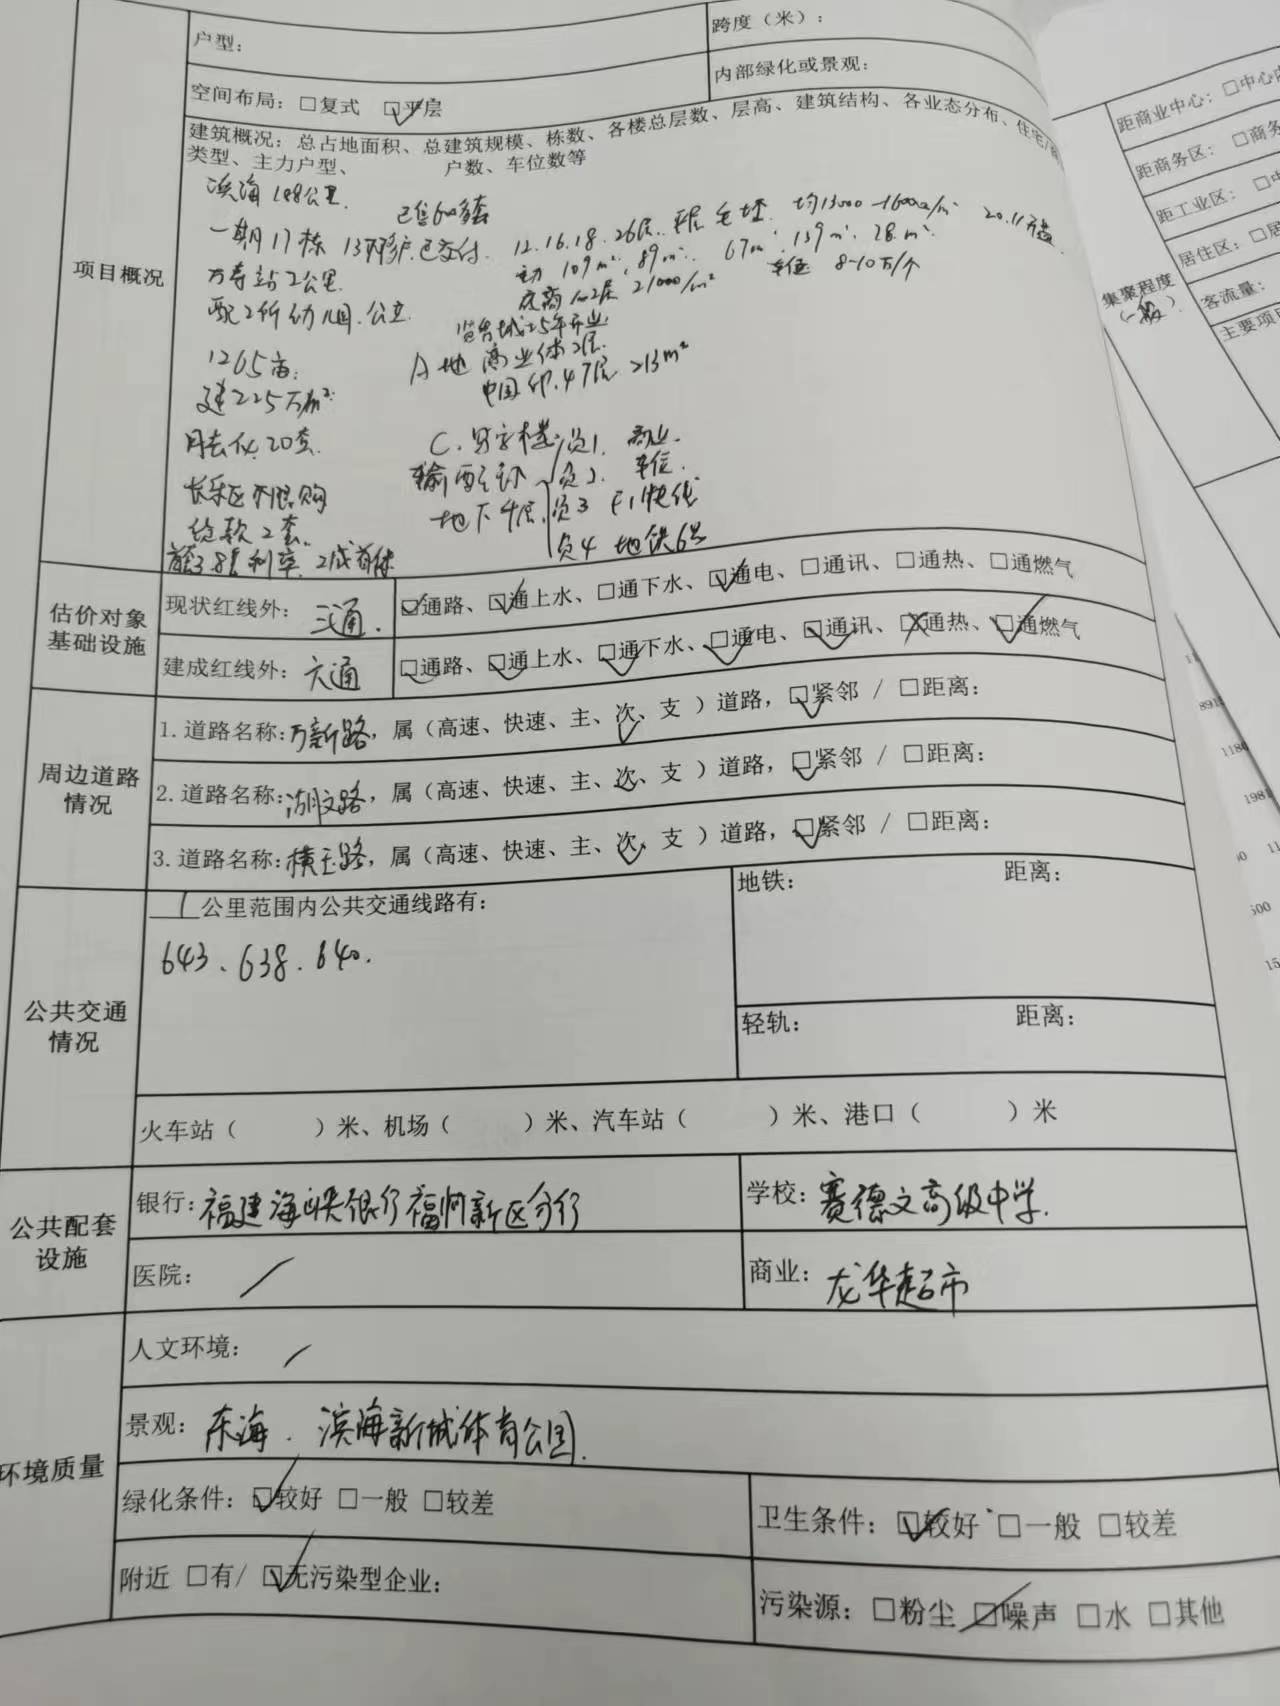 户型：
跨度（米）：
空间布局：□复式 ☑平层
内部绿化或景观：
建筑概况：总占地面积、总建筑规模、栋数、各楼总层数、层高、建筑结构、各业态分布、住宅/
类型、主力户型、 户数、车位数等
项目概况
滨海 188公里.
已售600多套
一期17栋 已交付. 12.16.18.26层. 平层 毛坯. 均13000-16000/m² 20.11
万寿站2公里
主力 109m². 89m². 67m². 139m². 78.m².
底商 1-2层 21000/m² 车位 8-10万/个
配2所幼儿园.公立
25年开业
1265亩.
A地 商业体2层.
中国印.47层 213m²
建225万m².
月去化.20套.
C.写字楼 负1. 商业.
负2. 车位.
长乐区不限购
地下4层. 负3 F1快线
贷款2套.
负4 地铁6号
利率. 2成首付
估价对象
基础设施
现状红线外：三通.
☑通路、☑通上水、□通下水、☑通电、□通讯、□通热、□通燃气
建成红线外：六通
☑通路、☑通上水、☑通下水、☑通电、☑通讯、☒通热、☑通燃气
周边道路
情况
1.道路名称:万新路，属（高速、快速、主、次、支 ）道路，☑紧邻 / □距离：
2.道路名称:湖文路，属（高速、快速、主、次、支 ）道路，☑紧邻 / □距离：
3.道路名称:横五路，属（高速、快速、主、次、支 ）道路，☑紧邻 / □距离：
公共交通
情况
1公里范围内公共交通线路有：
643、638.640.
地铁： 距离：
轻轨： 距离：
火车站（ ）米、机场（ ）米、汽车站（ ）米、港口（ ）米
公共配套
设施
银行：福建海峡银行福州新区分行
学校：赛德文高级中学.
医院：/
商业：龙华超市
环境质量
人文环境：/
景观：东海. 滨海新城体育公园.
绿化条件：☑较好 □一般 □较差
卫生条件：☑较好 □一般 □较差
附近 □有/ ☑无污染型企业：
污染源：□粉尘 ☑噪声 □水 □其他
集聚程度
（一般）
距商业中心：□中心
距商务区： □商务
距工业区： □
居住区：□居
客流量：
主要项目